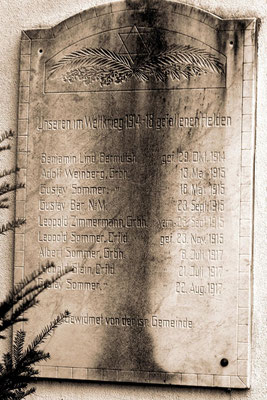 Unseren im Weltkrieg 1914-18 gefallenen Helden
Benjamin Lind, Bermuish. gef. 29. Okt. 1914
Adolf Weinberg, Gröh. " 13. Mai 1915
Gustav Sommer, " " 18. Mai 1915
Gustav Bär, N.M. " 23. Sept. 1915
Leopold Zimmermann, Gröh. 1915
Leopold Sommer, Crfld. gef. 20. Nov. 1915
Albert Sommer, Gröh. Juli 1917
Stein, Crfld. 21. Juli 1917
Sommer, " 22. Aug. 1917
Gewidmet von der isr. Gemeinde